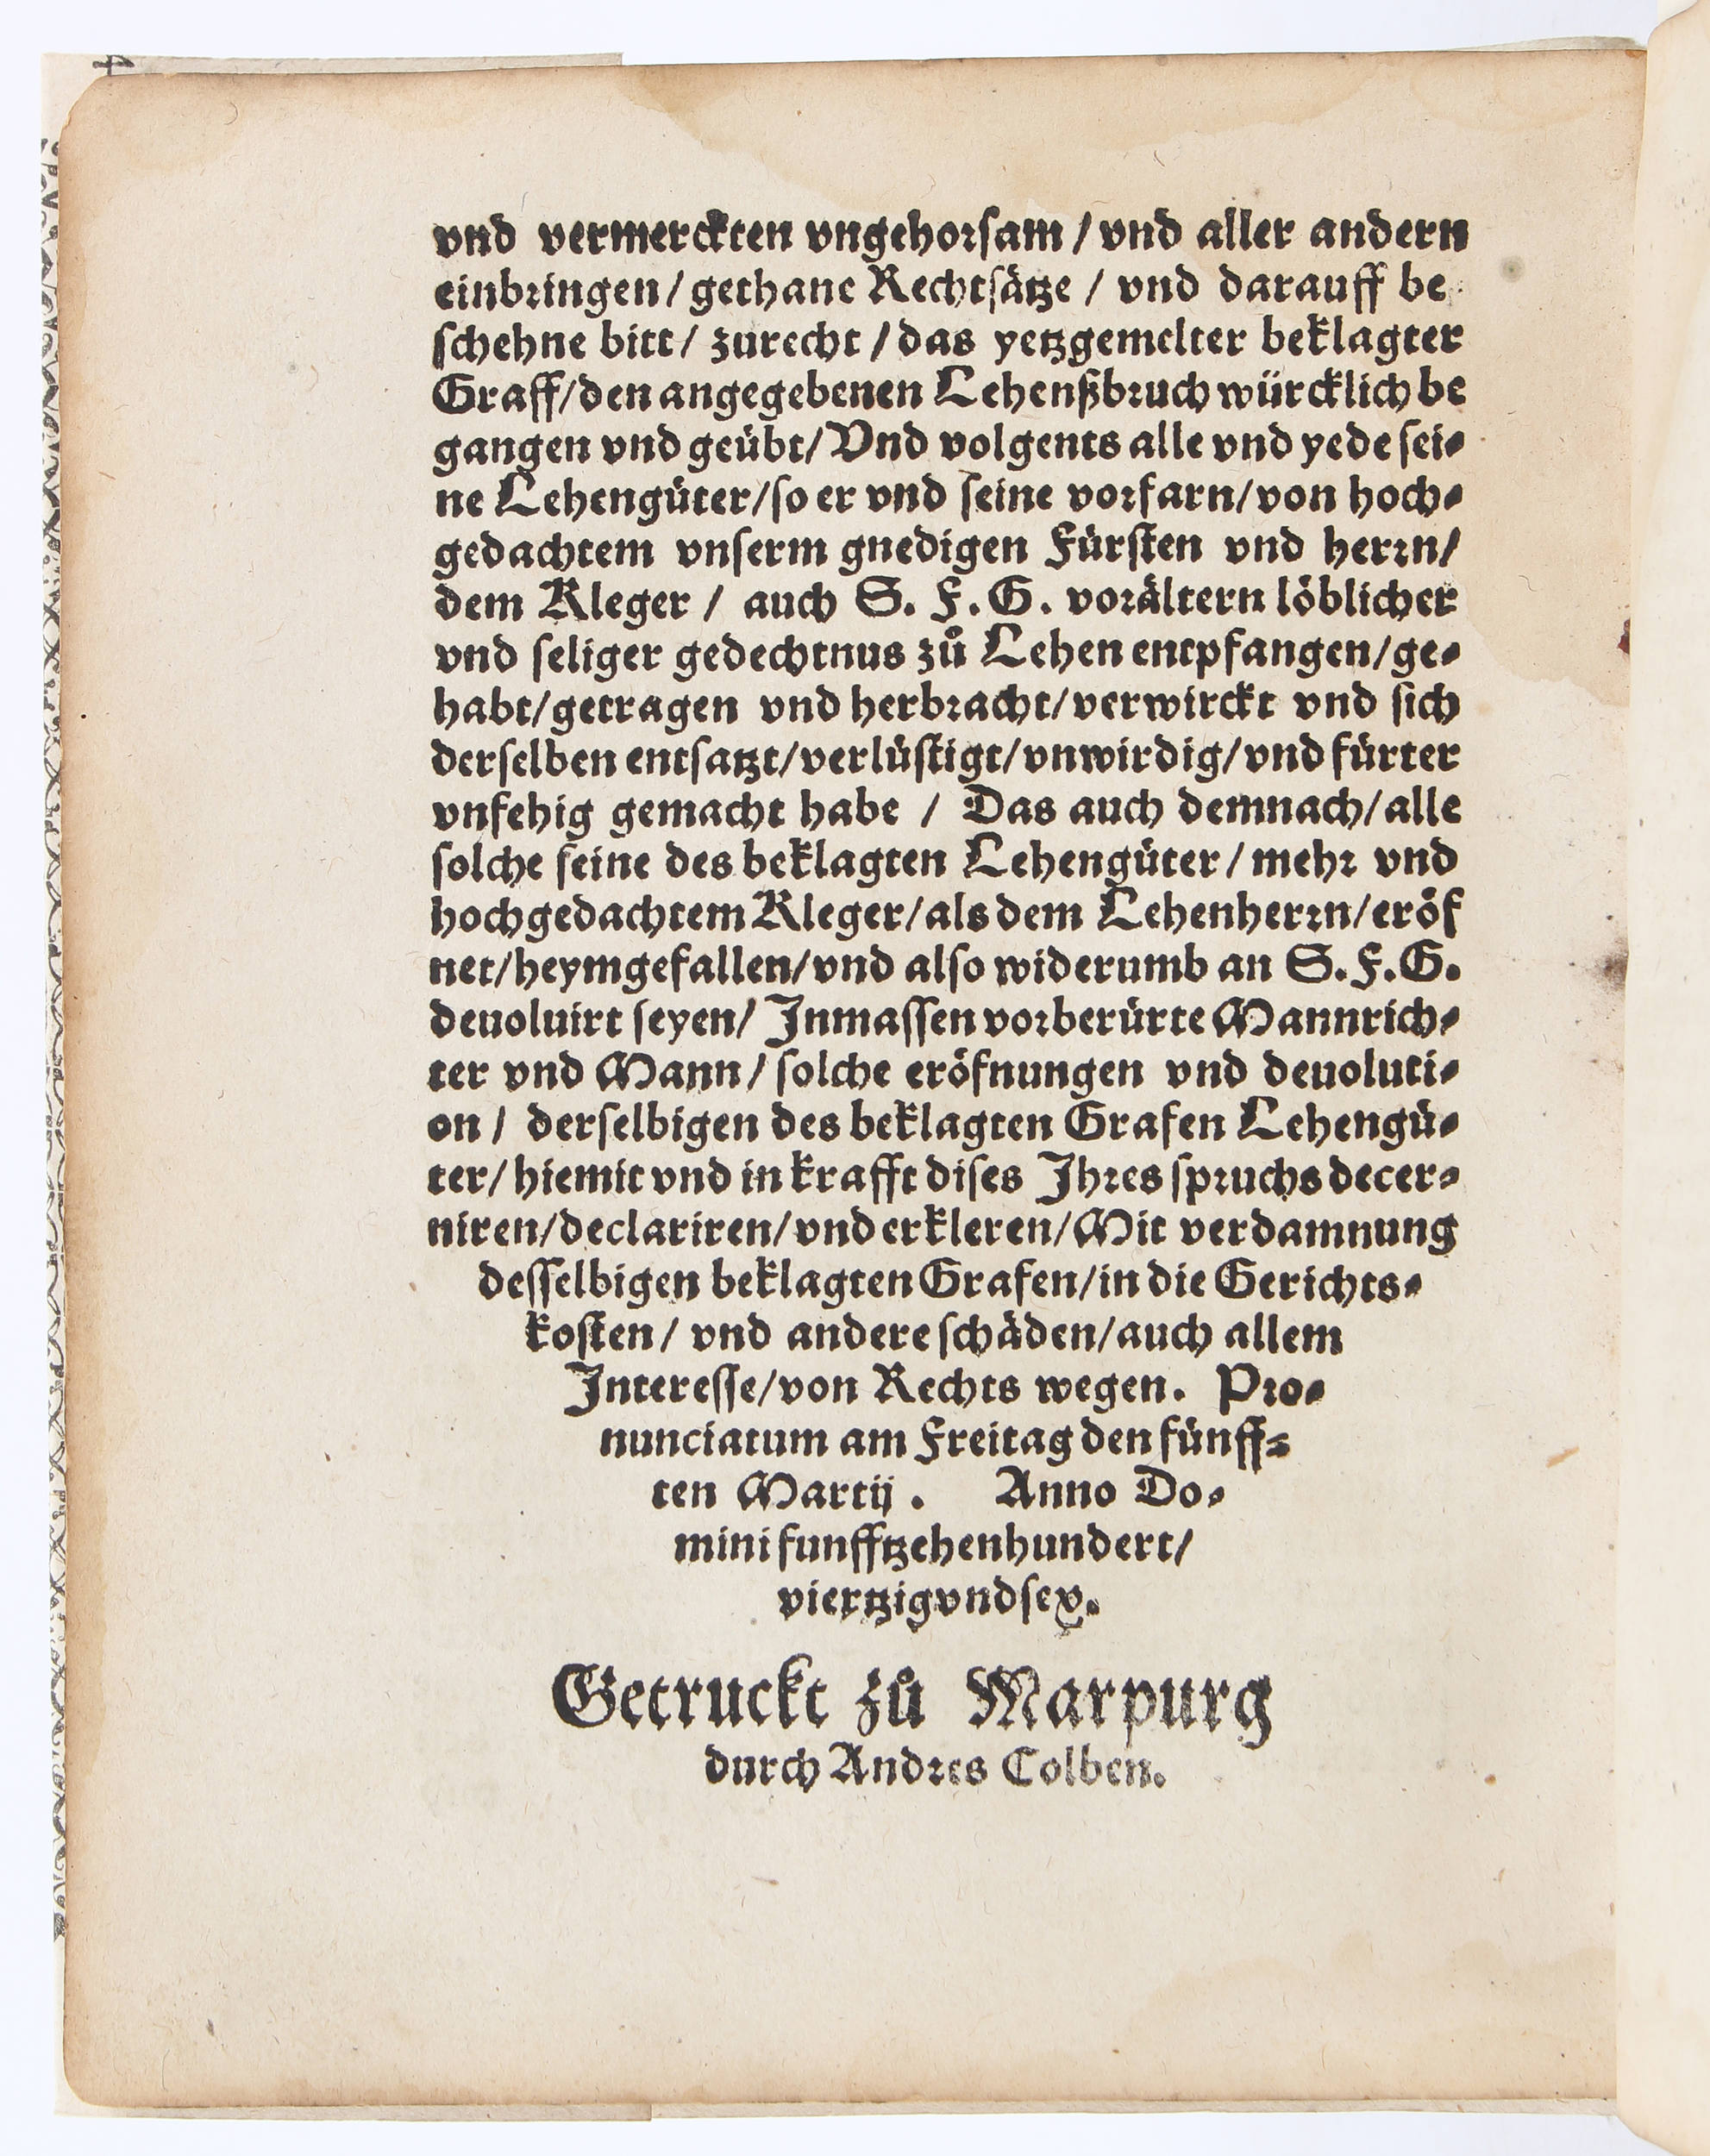 vnd vermerckten vngehorsam / vnd aller andern
einbringen / gethane Rechtsätze / vnd darauff be
schehne bitt / zurecht / das yetzgemelter beklagter
Graff / den angegebenen Lehenßbruch würcklich be
gangen vnd geübt / Vnd volgents alle vnd yede sei⸗
ne Lehengüter / so er vnd seine vorfarn / von hoch⸗
gedachtem vnserm gnedigen Fürsten vnd herrn /
dem Kleger / auch S. F. G. vorältern löblicher
vnd seliger gedechtnus zů Lehen entpfangen / ge⸗
habt / getragen vnd herbracht / verwirckt vnd sich
derselben entsatzt / verlüstigt / vnwirdig / vnd fürter
vnfehig gemacht habe / Das auch demnach / alle
solche seine des beklagten Lehengüter / mehr vnd
hochgedachtem Kleger / als dem Lehenherrn / eröf
net / heymgefallen / vnd also widerumb an S. F. G.
deuoluirt seyen / Inmassen vorberürte Mannrich⸗
ter vnd Mann / solche eröfnungen vnd deuoluti⸗
on / derselbigen des beklagten Grafen Lehengü⸗
ter / hiemit vnd in krafft dises Ihres spruchs decer⸗
niren / declariren / vnd erkleren / Mit verdamnung
desselbigen beklagten Grafen / in die Gerichts⸗
kosten / vnd andere schäden / auch allem
Interesse / von Rechts wegen. Pro⸗
nunciatum am Freitag den fünff⸗
ten Martij. Anno Do⸗
mini funfftzehenhundert /
viertzigvndsex.
Getruckt zů Marpurg
durch Andres Colben.